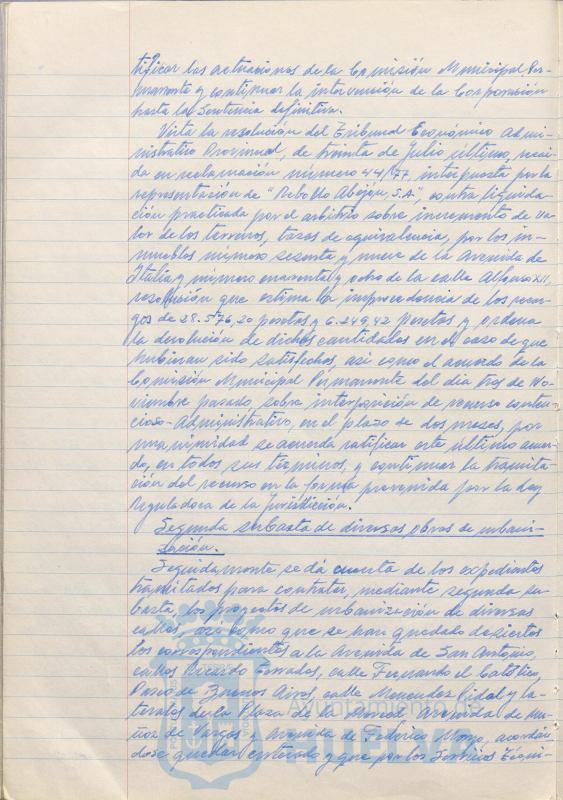 tificar las actuaciones de la Comisión Municipal Per-
manente y continuar la intervención de la Corporación
hasta la Sentencia definitiva.
Vista la resolución del Tribunal Económico Admi-
nistrativo Provincial, de treinta de Julio último, recaí-
da en reclamación número 44/77, interpuesta por la
representación de "Rebollo Abejón, S.A.", contra liquida-
ción practicada por el arbitrio sobre incremento de va-
lor de los terrenos, tasas de equivalencia, por los in-
muebles número sesenta y nueve de la Avenida de
Italia y número cuarenta y ocho de la calle Alfonso XII,
resolución que estima la improcedencia de los recar-
gos de 28.576,20 pesetas y 6.249,42 pesetas y ordena
la devolución de dichas cantidades en el caso de que
hubieran sido satisfechas, así como el acuerdo de la
Comisión Municipal Permanente del día tres de No-
viembre pasado sobre interposición de recurso conten-
cioso-Administrativo, en el plazo de dos meses, por
unanimidad se acuerda ratificar este último acuer-
do, en todos sus términos, y continuar la tramita-
ción del recurso en la forma prevenida por la Ley
Reguladora de la Jurisdicción.
Segunda subasta de diversas obras de urbani-
zación.
Seguidamente se dá cuenta de los expedientes
tramitados para contratar, mediante segunda su-
basta, los proyectos de urbanización de diversas
calles, así como que se han quedado desiertos
los correspondientes a la Avenida de San Antonio,
calles Ricardo Terrades, calle Fernando el Católico,
Paseo de Buenos Aires, calle Menendez Pidal y la-
terales de la Plaza de la Merced, Avenida de Mu-
ñoz de Vargas y Avenida de Federico Mayo, acordán-
dose quedar enterado y que por los Servicios Técni-
Ayuntamiento de
HUELVA